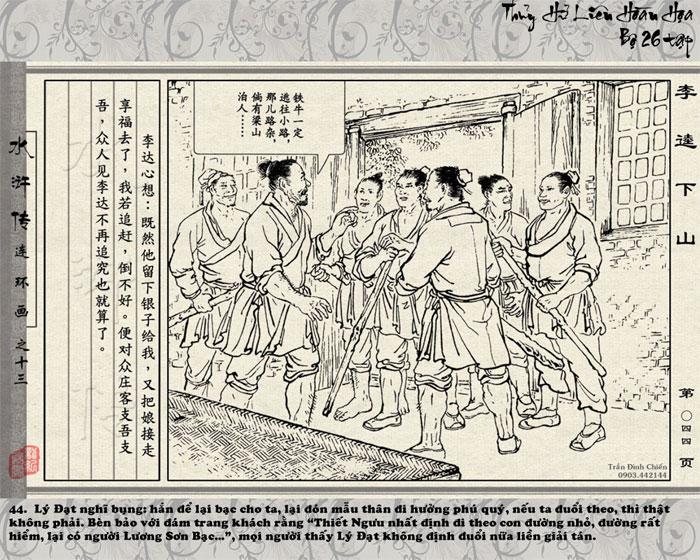 Thủy Hử Liên Hoàn Họa
Bộ 26 tập
李逵下山
第〇四四页
铁牛一定
逃往小路，
那儿路杂，
倘有梁山
泊人……
李达心想：既然他留下银子给我，又把娘接走
享福去了，我若追赶，倒不好。便对众庄客支吾支
吾，众人见李达不再追究也就算了。
水浒传 连环画 之十三
Trần Đình Chiến
0903.442144
44. Lý Đạt nghĩ bụng: hắn để lại bạc cho ta, lại đón mẫu thân đi hưởng phú quý, nếu ta đuổi theo, thì thật
không phải. Bèn bảo với đám trang khách rằng “Thiết Ngưu nhất định đi theo con đường nhỏ, đường rất
hiểm, lại có người Lương Sơn Bạc...”, mọi người thấy Lý Đạt không định đuổi nữa liền giải tán.